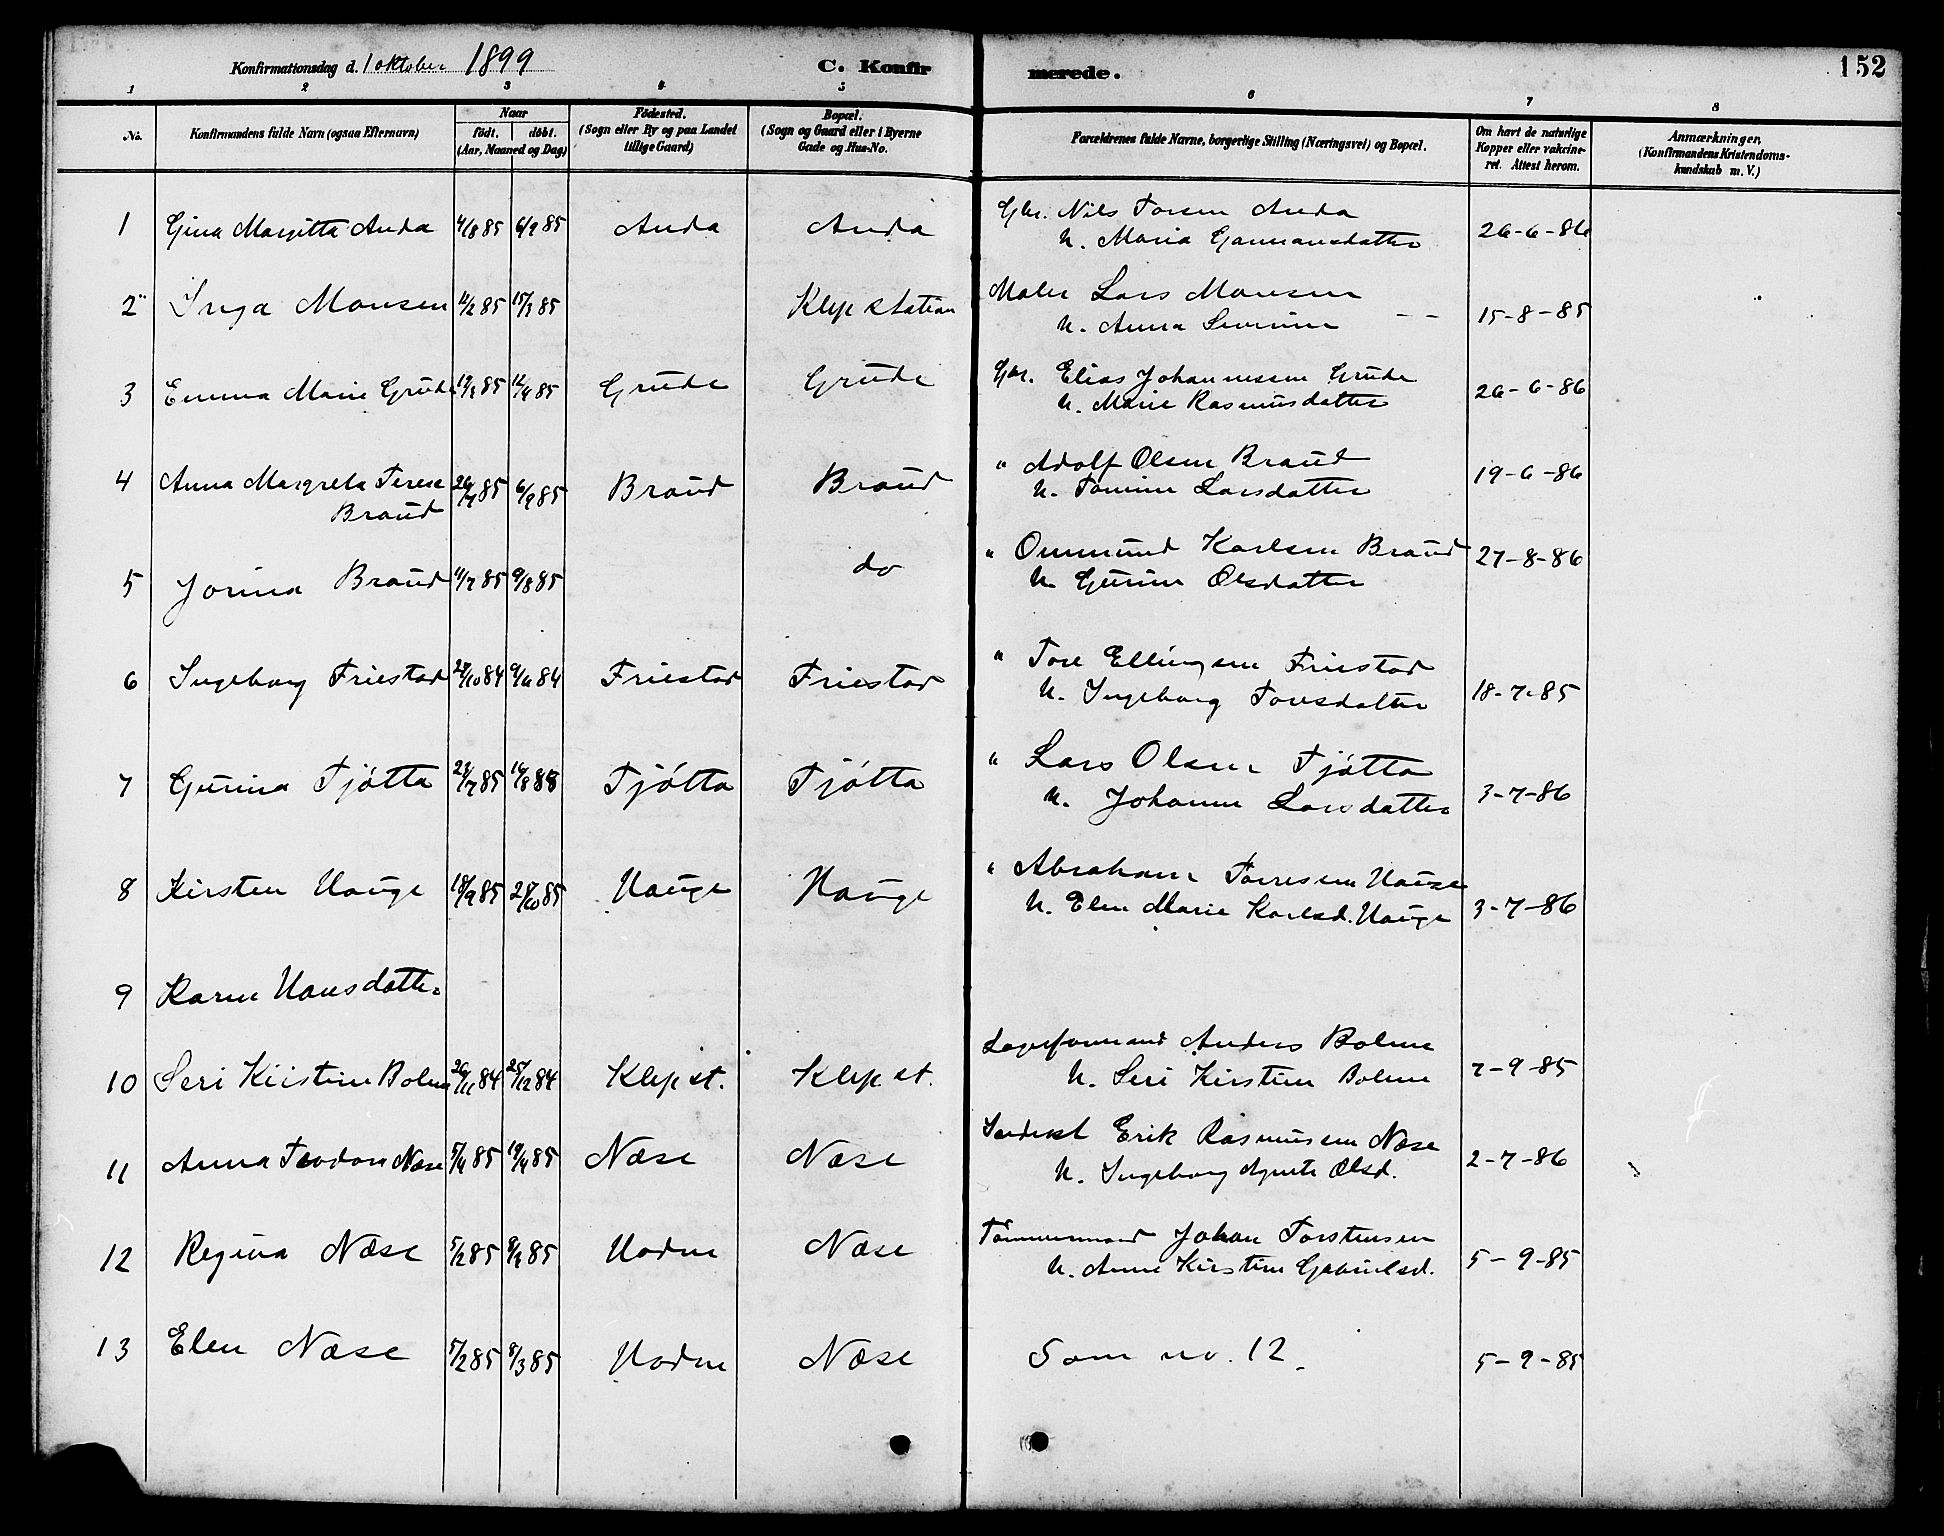 152
Konfirmationsdag d. 1 oktober 1899 C. Konfirmerede.
1 2 3 4 5 6 7 8
No. Konfirmandens fulde Navn (ogsaa Efternavn) Naar født. døbt. (Aar, Maaned og Dag) Fødested. (Sogn eller By og paa Landet tillige Gaard) Bopæl. (Sogn og Gaard eller i Byerne Gade og Hus-No. Forældrenes fulde Navne, borgerlige Stilling (Næringsvei) og Bopæl. Om havt de naturlige Kopper eller vakcineret. Attest herom. Anmærkninger, (Konfirmandens Kristendomskundskab m. V.)
1 Gina Margitta Anda 4/8 85 6/9 85 Anda Anda Gbr. Nils Torsen Anda
H. Maria Gunnarsdatter 26-6-86
2 Inga Monsen 11/2 85 15/3 85 Klep station Maler Lars Monsen
H. Anna Severine -- 15-8-85
3 Emma Marie Grude 19/3 85 12/4 85 Grude Grude Gbr. Elias Johannessen Grude
H. Marie Rasmusdatter 26-6-86
4 Anna Margreta Terese 26/7 85 6/9 85 Braud Braud " Adolf Olsen Braud
Braud H. Tomine Larsdatter 19-6-86
5 Jorina Braud 11/7 85 9/8 85 do " Ommund Karlsen Braud
H Gurine Olsdatter 27-8-86
6 Ingeborg Friestad 29/10 84 9/11 84 Friestad Friestad " Tore Ellingsen Friestad
H. Ingeborg Toresdatter 18-7-85
7 Gurina Tjøtta 23/7 85 16/8 88 Tjøtta Tjøtta " Lars Olsen Tjøtta
H. Johanne Larsdatter 3-7-86
8 Kirsten Hauge 18/9 85 2/10 85 Hauge Hauge " Abraham Torresen Hauge
H. Elen Marie Karlsd. Hauge 3-7-86
9 Karen Hansdatter
10 Seri Kirstine Bolme 26/11 84 25/12 84 Klep st. Klep st. Lagerformand Anders Bolme
H. Seri Kirstine Bolme 7-9-85
11 Anna Teodora Næse 5/4 85 19/4 85 Næse Næse Erik Rasmusen Næse
H. Ingeborg Agnete Olsd. 2-7-86
12 Regina Næse 5/2 85 8/3 85 Hodne Næse Tømmermand Johan Torstensen
H. Anne Kirstine Gabrielsd. 5-9-85
13 Elen Næse 5/2 85 8/3 85 Hodne Næse Som no. 12. 5-9-85